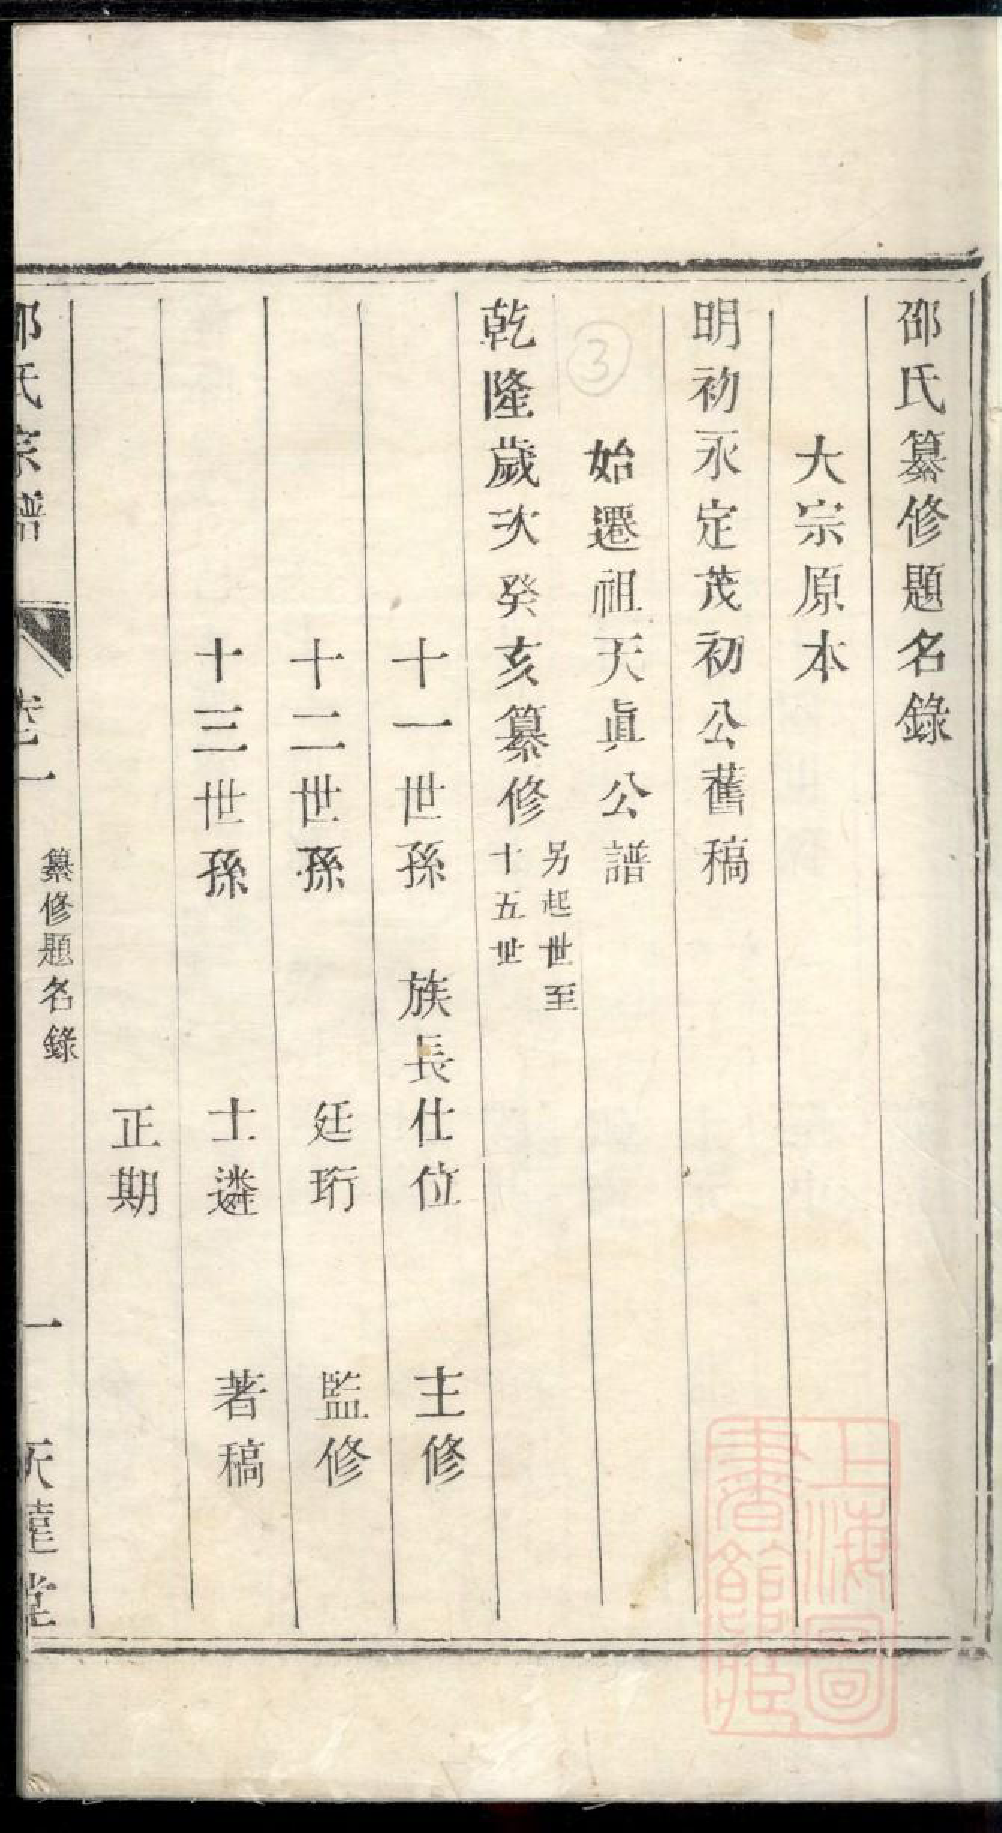 邵氏纂修題名錄
大宗原本
明初永定茂初公舊稿
始遷祖天眞公譜
乾隆歲次癸亥纂修 另起世至十五世
十一世孫 族長仕位 主修
十二世孫 廷珩 監修
十三世孫 士遴 著稿
正期
邵氏宗譜 卷一 纂修題名錄 一 天蓬堂
③
上海圖書館藏